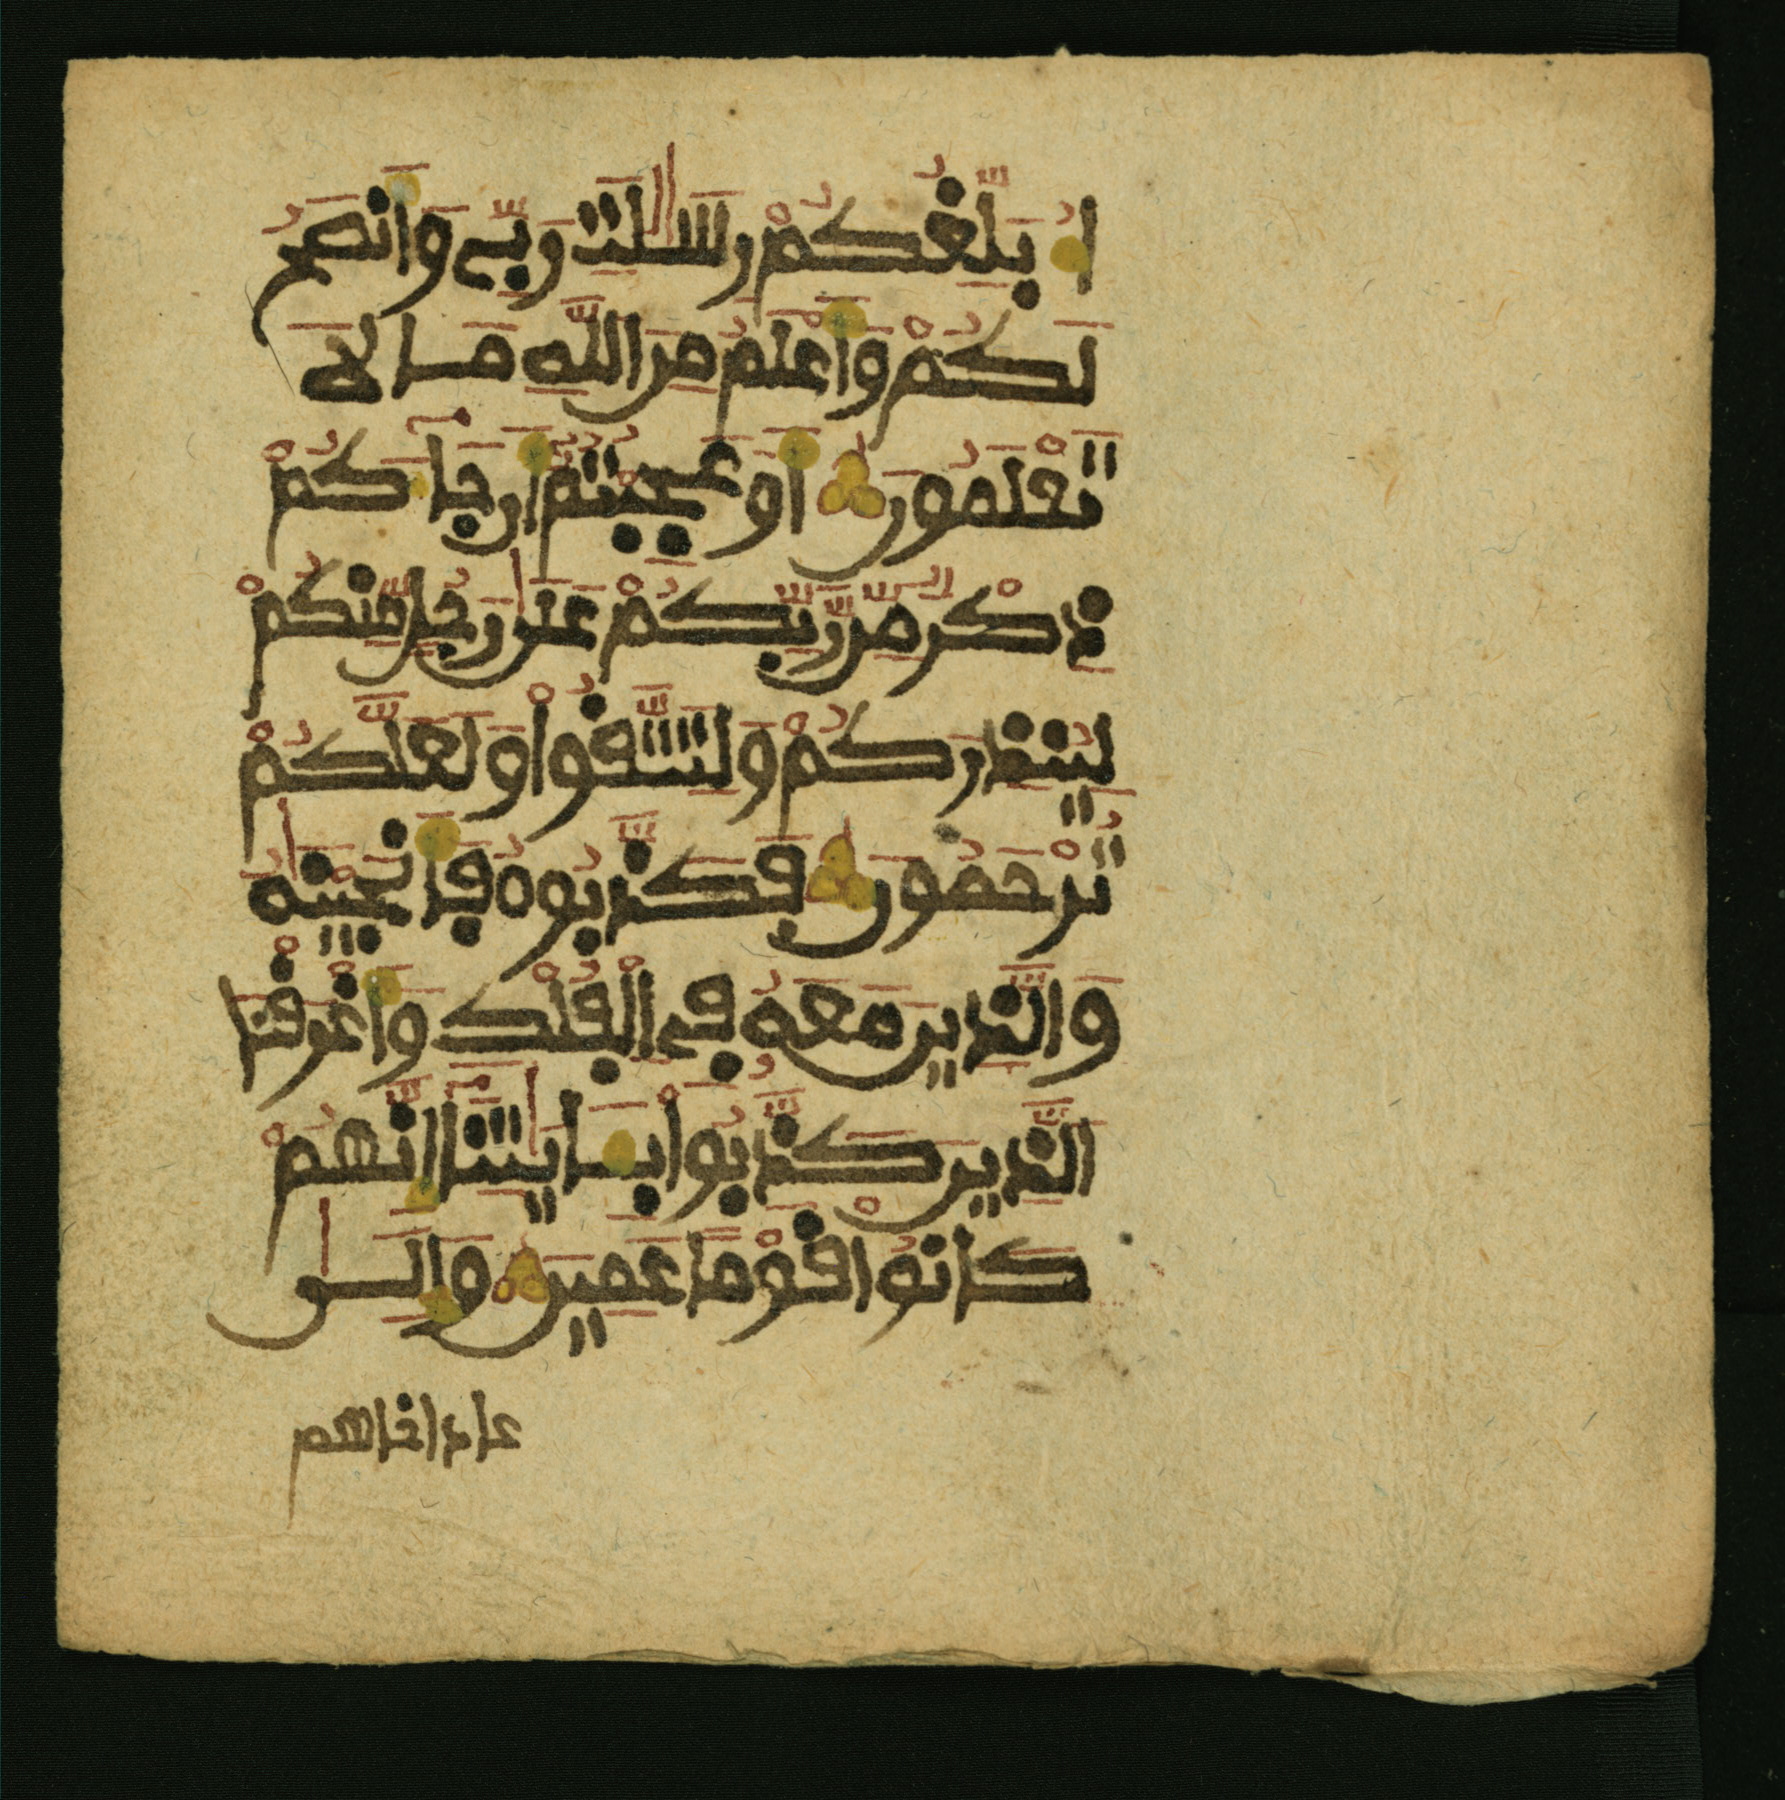 اُبَلِّغُكُمْ رِسَٰلَٰتِ رَبِّے وَأَنصَحُ
لَكُمْ وَأَعْلَمُ مِنَ اللَّهِ مَا لَا
تَعْلَمُونَ أَوَعَجِبْتُمُ أَن جَآءَكُمْ
ذِكْرٌ مِّن رَّبِّكُمْ عَلَىٰ رَجُلٍ مِّنكُمْ
لِيُنذِرَكُمْ وَلِتَتَّقُواْ وَلَعَلَّكُمْ
تُرْحَمُونَ فَكَذَّبُوهُ فَأَنجَيْنَٰهُ
وَالَّذِينَ مَعَهُ فِے الْفُلْكِ وَأَغْرَقْنَا
الَّذِينَ كَذَّبُواْ بِـَٔايَٰتِنَآ إِنَّهُمْ
كَانُواْ قَوْمًا عَمِينَ وَإِلَىٰ
عاد اخاهم